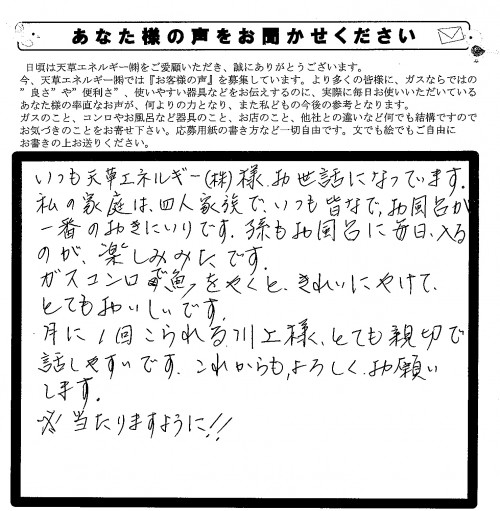 あなた様の声をお聞かせください
日頃は天草エネルギー㈱をご愛顧いただき、誠にありがとうございます。
今、天草エネルギー㈱では『お客様の声』を募集しています。より多くの皆様に、ガスならではの
”良さ”や”便利さ”、使いやすい器具などをお伝えするのに、実際に毎日お使いいただいている
あなた様の率直なお声が、何よりの力となり、また私どもの今後の参考となります。
ガスのこと、コンロやお風呂など器具のこと、お店のこと、他社との違いなど何でも結構ですので
お気づきのことをお寄せ下さい。応募用紙の書き方など一切自由です。文でも絵でもご自由に
お書きの上お送りください。
いつも天草エネルギー(株)様、お世話になっています。
私の家庭は、四人家族で、いつも皆なで、お風呂が
一番のおきにいりです。孫もお風呂に毎日、入る
のが、楽しみみたです。
ガスコンロで魚をやくと、きれいにやけて、
とてもおいしいです。
月に1回こられる川上様、とても親切で
話しやすいです。これからも、よろしく、お願い
します。
※当たりますように!!